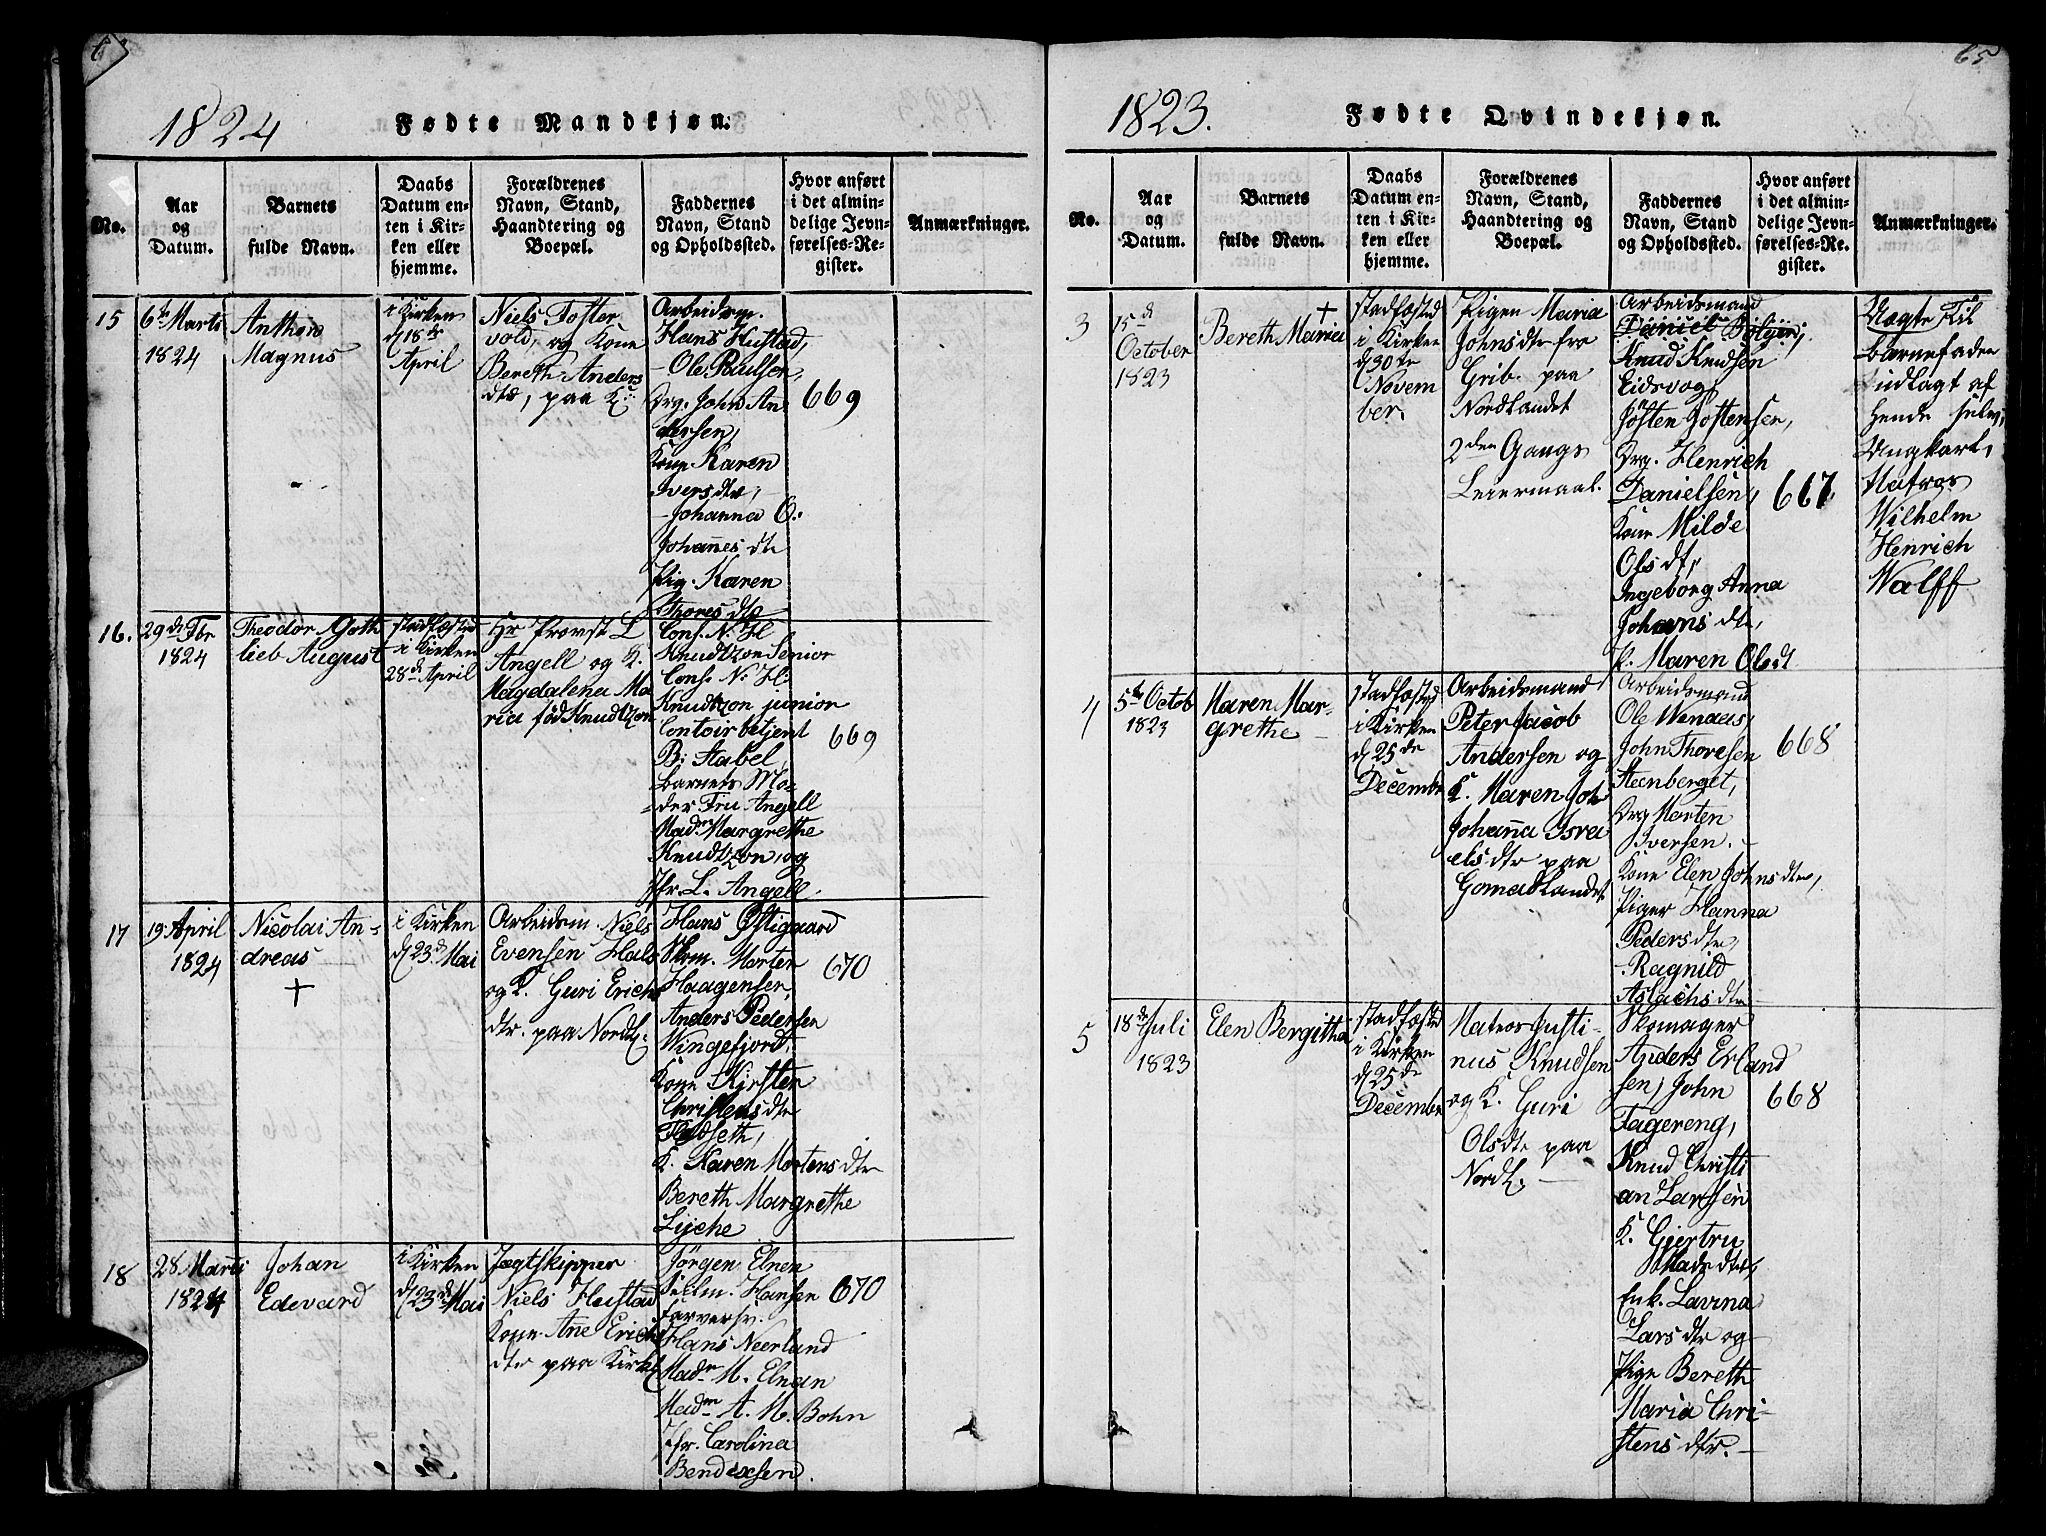 1824
Fødte Mandkjøn.
No.
Aar
og
Datum.
Barnets
fulde Navn.
Daabs
Datum en-
ten i Kir-
ken eller
hjemme.
Forældrenes
Navn, Stand,
Haandtering og
Boepæl.
Faddernes
Navn, Stand
og Opholdssted.
Hvor anført
i det almin-
delige Jevn-
førelses-Re-
gister.
Anmærkninger.
15
6te Marts
1824
Anthon
Magnus
i Kirken
d 18de
April
Niels Foster
vold, og Kone
Bereth Anders
dtr, paa K:
Arbeidsm.
Hans Hustad,
- Ole Paulsen,
Drg. John An
dersen,
Kone Karen
Iversdtr,
- Johanna O:
Johannes dtr
Pig. Karen
Thores dtr
669
16.
29de Fbr
1824
Theodor Goth
lieb August
stadfæsted
i Kirken
28de April
Hr Provst L
Angell og K.
Magdalena Ma
ria fød Knudtzon
Cons. N. H
Knudtzon Senior
Cons. N. H:
Knudtzon junior
Contoirbetjent
B: Stabel,
Barnets Mo-
der Fru Angell
Madm Margrethe
Knudtzon, og
Jfr. L. Angell.
669
17
19 April
1824
Nicolai An-
dreas
+
i Kirken
d 23de Mai
Arbeidsm Niels
Evensen Hals
og K. Guri Erichs
dtr. paa Nordl:
Hans Østigaard
Skom. Morten
Haagensen,
Anders Pedersen
Wingefjord,
Kone Kirsten
Christensdtr
Flødseth,
K. Karen Mortensdtr
Bereth Margrethe
Lyche
670
18
28 Marts
1824
Johan
Edevard
i Kirken
d 23de Mai
Jægtskipper
Niels Hustad
Kone Ane Erichs
dtr paa Kirkl
Jörgen Elnen
Seilm. Hansen
Farversv.
Hans Neerland
Madm M. Elnan
Madm A. M. Bohn
Jfr. Carolina
Bendixsen.
670
65
1823.
Fødte Qvindekjøn.
No.
Aar
og
Datum.
Barnets
fulde Navn.
Daabs
Datum en-
ten i Kir-
ken eller
hjemme.
Forældrenes
Navn, Stand,
Haandtering og
Boepæl.
Faddernes
Navn, Stand
og Opholdssted.
Hvor anført
i det almin-
delige Jevn-
førelses-Re.
gister.
Anmærkninger.
3
15d
October
1823
+
Bereth Maria
stadfæsted
i Kirken
d 30te
Novem
ber.
Pigen Maria
Johnsdtr fra
Grib. paa
Nordlandet
2den Gangs
Leiermaal.
Arbeidsmand
Daniel
Knud Knudsen
Eidsvog,
Jösten Jostensen,
Drg. Henrich
Danielsen,
Kone Milde
Olsdt,
Ingeborg Anna
Johans dtr,
P. Maren Olsdt
667
Uægte Til
Barnefader
udlagt af
hende selv,
Ungkarl,
Matros
Wilhelm
Henrich
Walff
4
5te Octob
1823
Maren Mar-
grethe
stadfæsted
i Kirken
d 25de
Decembr
Arbeidsmand
Peter Jacob
Andersen og
K. Maren Joh
Johanna Isra
elsdtr paa
Gomalandet
Arbeidsmand
Ole Wendaas,
John Thoresen
Steenberget,
Drg Morten
Iversen.
Kone Elen Johnsdtr,
Piger Hanna
Pedersdtr,
- Ragnild
Aslachsdtr
668
5
18de Juli
1823
Elen Bergitha
stadfæsted
i Kirken
d 25de
Decembr
Matros Justi-
nus Knudsen
og K. Guri
Olsdtr paa
Nordl.
Skomager
Anders Erland
sen, John
Fagereng,
Knud Christi
an Larsen
K. Gjertru
Madsdtr,
Enk. Lavina
Lars dtr og
Pige Bereth
Maria Chri-
stens dtr.
668